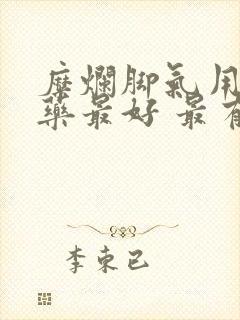 糜爛脚氣用
藥最好 最有
李束已